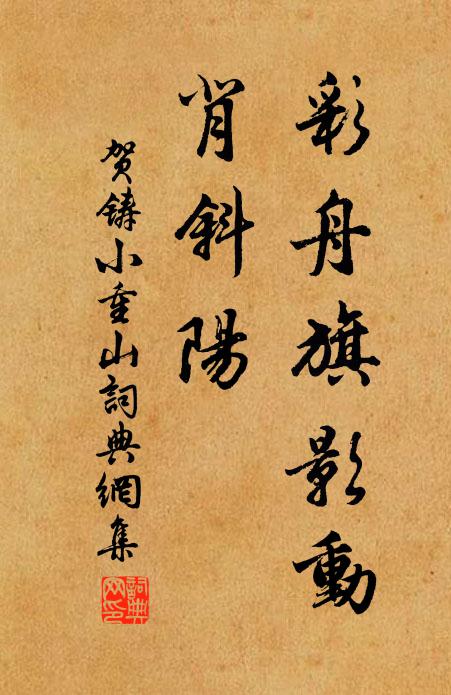 彩舟旗影動
背斜陽
贺鑄小重山詞典網集
詞典
网印